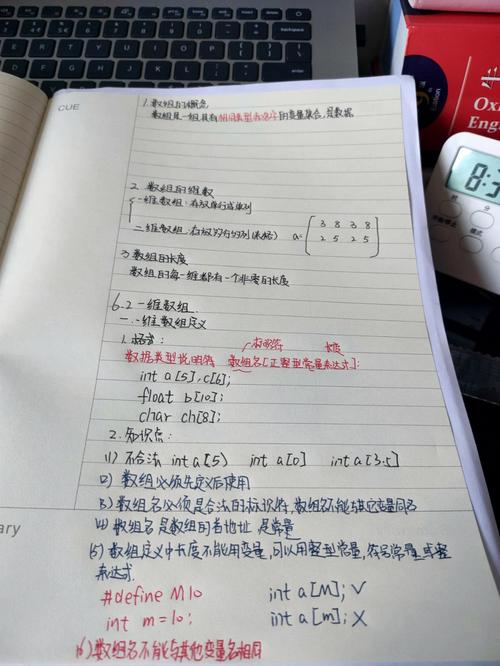 CUE
1.数组的概念
数组是一组具有相同类型和名字的变量集合,是数据
2.数组的维数
一维数组:存放单行或单列
二维数组:存放多行多列(表格) a=
3 8 3 8
2 5 2 5
3.数组的长度
数组的每一维都有一个非零的长度
6.2 一维数组
一.一维数组定义
1.格式: 标识符 长度
数据类型说明符 数组名[正整型常量表达式];
int a[5],c[6];
float b[10];
char ch[8];
2.知识点:
(1) 不合法 int a(5) int a[0] int a[3.5]
(2) 数组必须先定义后使用
(3) 数组名必须是合法的标识符,数组名不能与其它变量同名
(4) 数组名是数组的首地址 是常量
(5) 数组定义中长度不能用变量,可以用整型常量,符号常量,或整
表达式.
#define M 10 int a[M]; √
int m=10; int a[m]; X
(6) 数组名不能与其他变量名相同
ary
Oxf
Eng
Edition